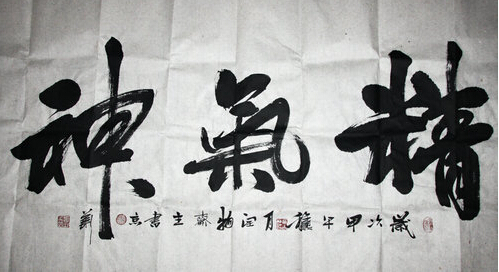 精氣神
歲次甲午 月 物齋主書京